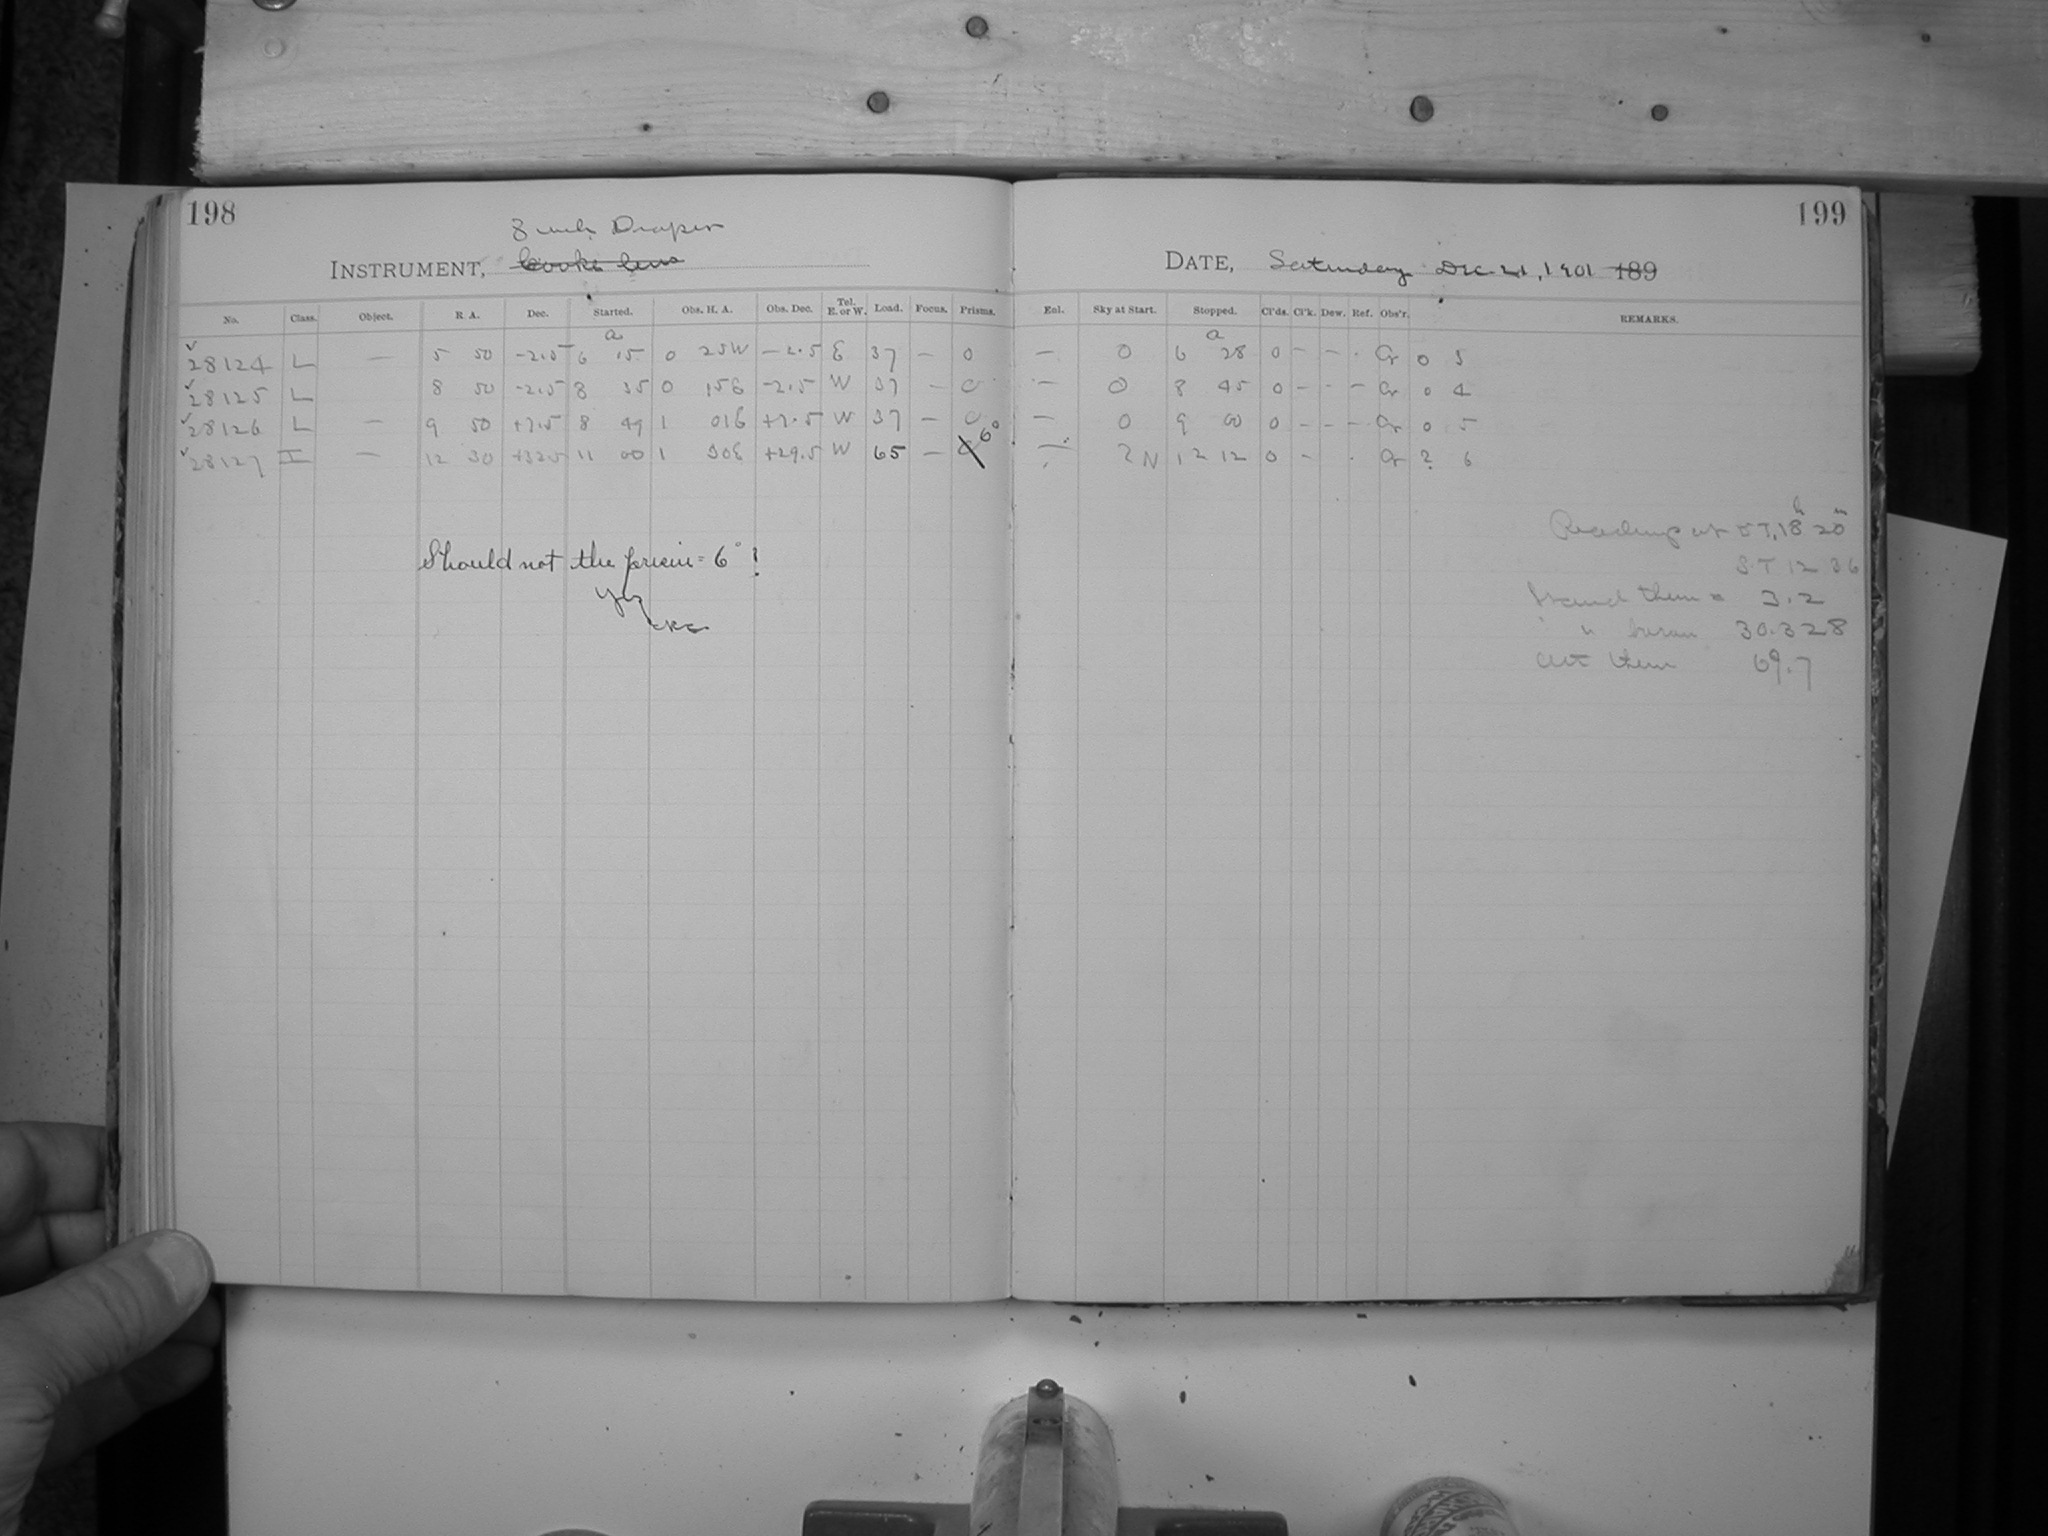 198
8 inch Draper
INSTRUMENT, Cooke lens
No. Class. Object. R. A. Dec. Started. Obs. H. A. Obs. Dec. Tel. E. or W. Load. Focus. Prisms.
a
28124 L — 5 50 -2.5 6 15 0 25W -2.5 E 37 - 0
28125 L 8 50 -2.5 8 35 0 15E -2.5 W 37 - 0
28126 L — 9 50 +7.5 8 49 1 01E +7.5 W 37 - 0
28127 I — 12 30 +32.5 11 00 1 30E +29.5 W 65 - 6°
Should not the prism = 6°?
Yes
199
DATE, Saturday Dec 21, 1901 189
Enl. Sky at Start. Stopped. Cl'ds. Cl'k. Dew. Ref. Obs'r. REMARKS.
a
— 0 6 28 0 - - . Cr 0 5
— 0 8 45 0 - - - Cr 0 4
— 0 9 00 0 - - - Cr 0 5
— 2 N 12 12 0 - . Cr 2 6
Readings at ST, 18h 20m
ST 12 36
Stand therm = 3.2
" " barom 30.328
Att therm 69.7